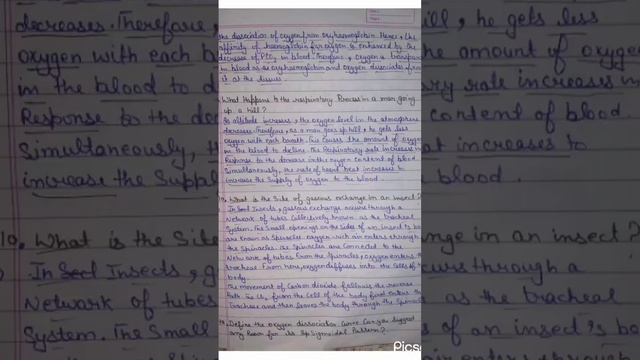 the dissociation of oxygen from oxyhaemoglobin. Hence, the
affinity of haemoglobin for oxygen is enhanced by the
decrease of PCO2 in blood. Therefore, oxygen is transported
in blood as oxyhaemoglobin and oxygen dissociates from
it at the tissues.
What Happens to the respiratory Process in a man going
up a hill?
As altitude increases, the oxygen level in the atmosphere
decreases. Therefore, as a man goes up hill, he gets less
oxygen with each breath. This causes the amount of oxygen
in the blood to decline. The Respiratory rate increases in
Response to the decrease in the oxygen content of blood.
Simultaneously, the rate of heart beat increases to
increase the Supply of oxygen to the blood.
10. What is the Site of gaseous exchange in an insect?
In Insects, gaseous exchange occurs through a
Network of tubes Collectively known as the tracheal
System. The Small openings on the sides of an insect's body
are known as Spiracles. oxygen rich air enters through
the Spiracles. The Spiracles are Connected to the
Network of tubes. From the Spiracles, oxygen enters the
tracheae. From here, oxygen diffuses into the cells of the
body.
The movement of Carbon dioxide follows the reverse
Path. The CO2 from the cells of the body first enters the
tracheae and then leaves the body through the Spiracles
Define the oxygen dissociation Curve. Can you Suggest
any Reason for its Sigmoidal Pattern?
decreases. Therefore,
oxygen with each b
in the blood to d
Response to the de
Simultaneously, th
increase the Supp
10. What is the Site
In Insects, g
Network of tubes
System. The Small
hill, he gets less
the amount of oxygen
ry rate increases in
content of blood.
increases to
blood.
ge in an insect?
urs through a
as the tracheal
of an insect's b
Picsa